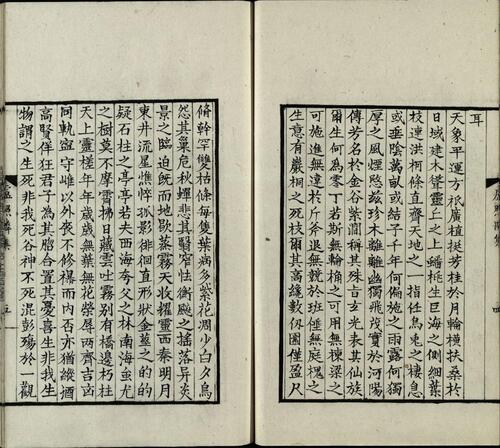 耳
天象平運方祇廣植挺芳桂於月輪橫扶桑於
日域建木聳靈丘之上蟠桃生巨海之側細葉
枝連洪柯條直齊天地之一指任烏兔之棲息
或垂陰萬畝或結子千年何偏施之雨露何獨
厚之風煙愍茲珍木離離幽獨飛茂實於河陽
傳芳名於金谷紫澗稱其殊旨玄光表其仙族
爾生何為零丁若斯無輪桷之可用無棟梁之
可施進無違於斤斧退無競於班倕無庭槐之
生意有巖桐之死枝爾其高纔數仞圍僅盈尺
脩幹罕雙枯條每隻葉病多紫花凋少白夕鳥
怨其巢危秋蟬悲其翳窄怯衝飈之搖落忌炎
景之臨迫既而地歇蒸霧天收耀靈西秦明月
東井流星憔悴孤影徘徊直形狀金莖之的的
疑石柱之亭亭若夫西海夸父之林南海蚩尤
之樹莫不摩霄拂日藏雲吐霧別有橋邊朽柱
天上靈槎年年歲歲無葉無花榮辱兩齊吉凶
同軌寧守雌以外喪不修襮而內否亦猶縱酒
高賢佯狂君子為其吻合置其憂喜生非我生
物謂之生死非我死谷神不死混彭殤於一觀